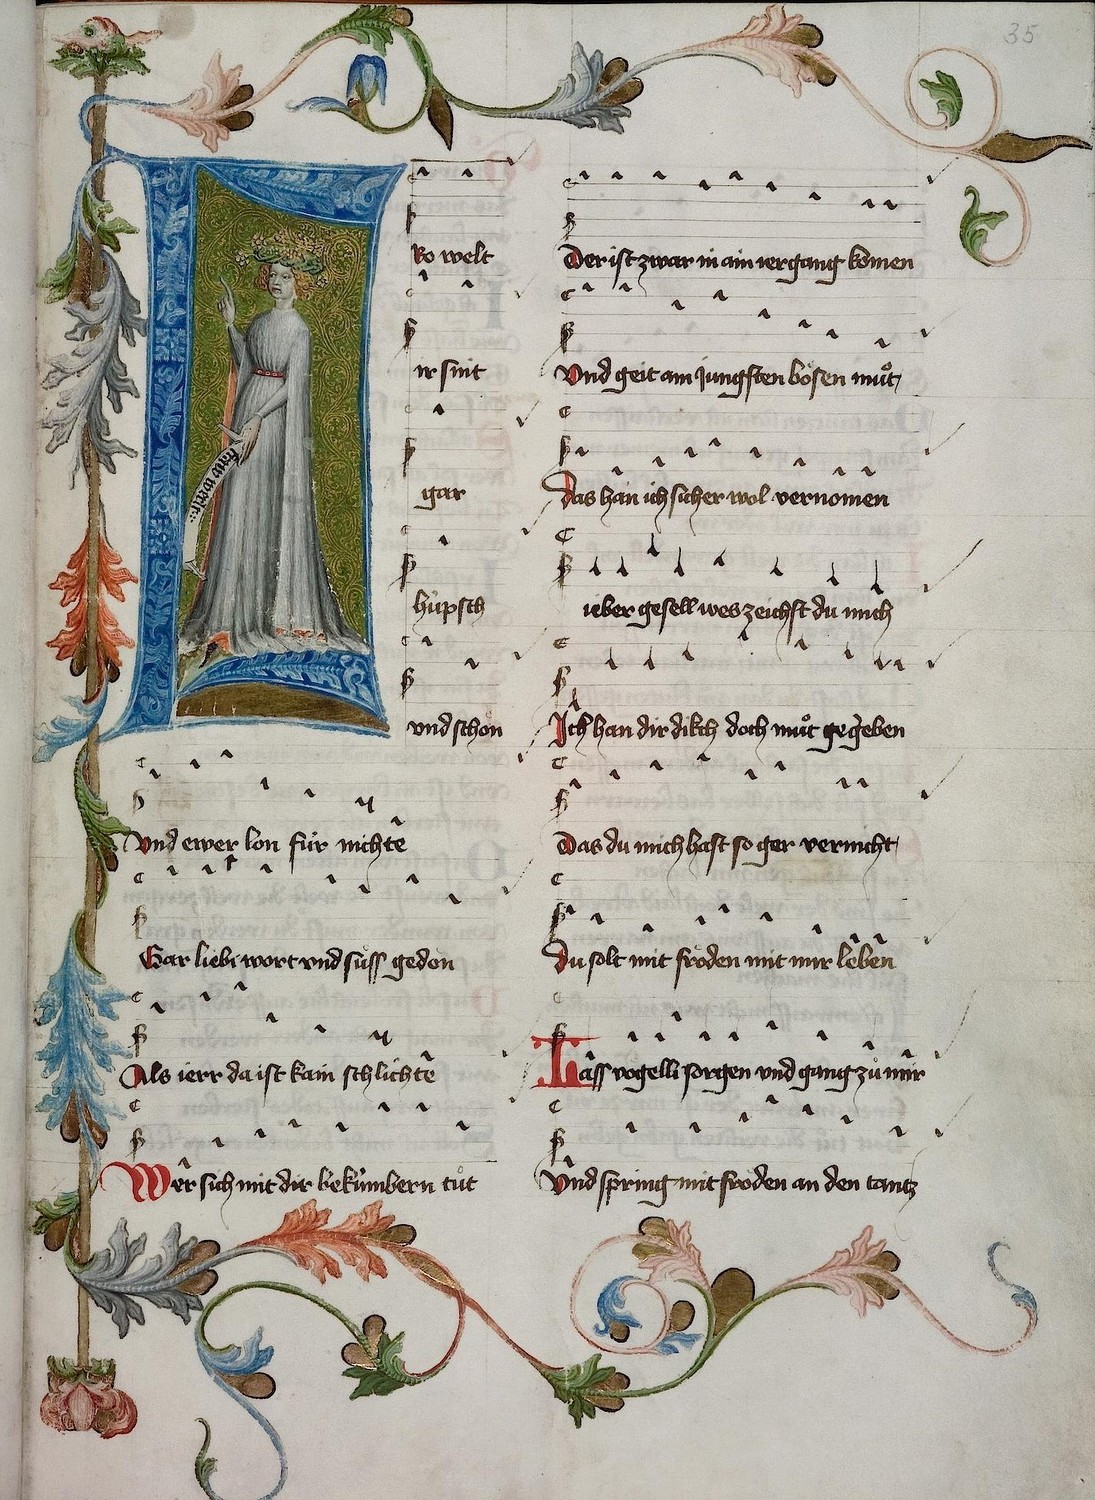 35
Fro welt
ir sint
gar
hüpsch
vnd schön
Vnd ewer lon für nichte
Gar liebi wort vnd süss gedön
Als ierr da ist kain schlichte
Wer sich mit dir bekümbern tůt
fraw welt
Der ist zwar in ain iergang komen
Vnd geit am jungsten bösen můt
Das han ich sicher wol vernomen
ieber gesell wes zeichst du mich
Ich han dir dikch doch můt gegeben
Das du mich hast so ger vernicht
Du solt mit fröden mit mir leben
Lass vogelli sorgen vnd gang zů mir
Vnd spring mit froden an den tantz